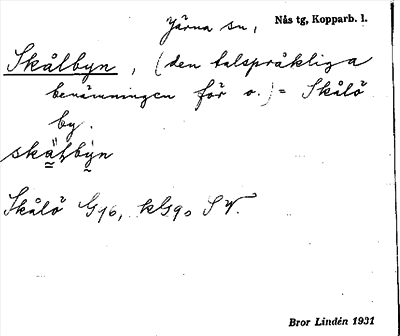 Järna sn, Nås tg, Kopparb. l.
Skålbyn, (den talspråkliga
benämningen för o.) = Skålö
by.
Skålö G96, kbl90 SV.
Bror Lindén 1931